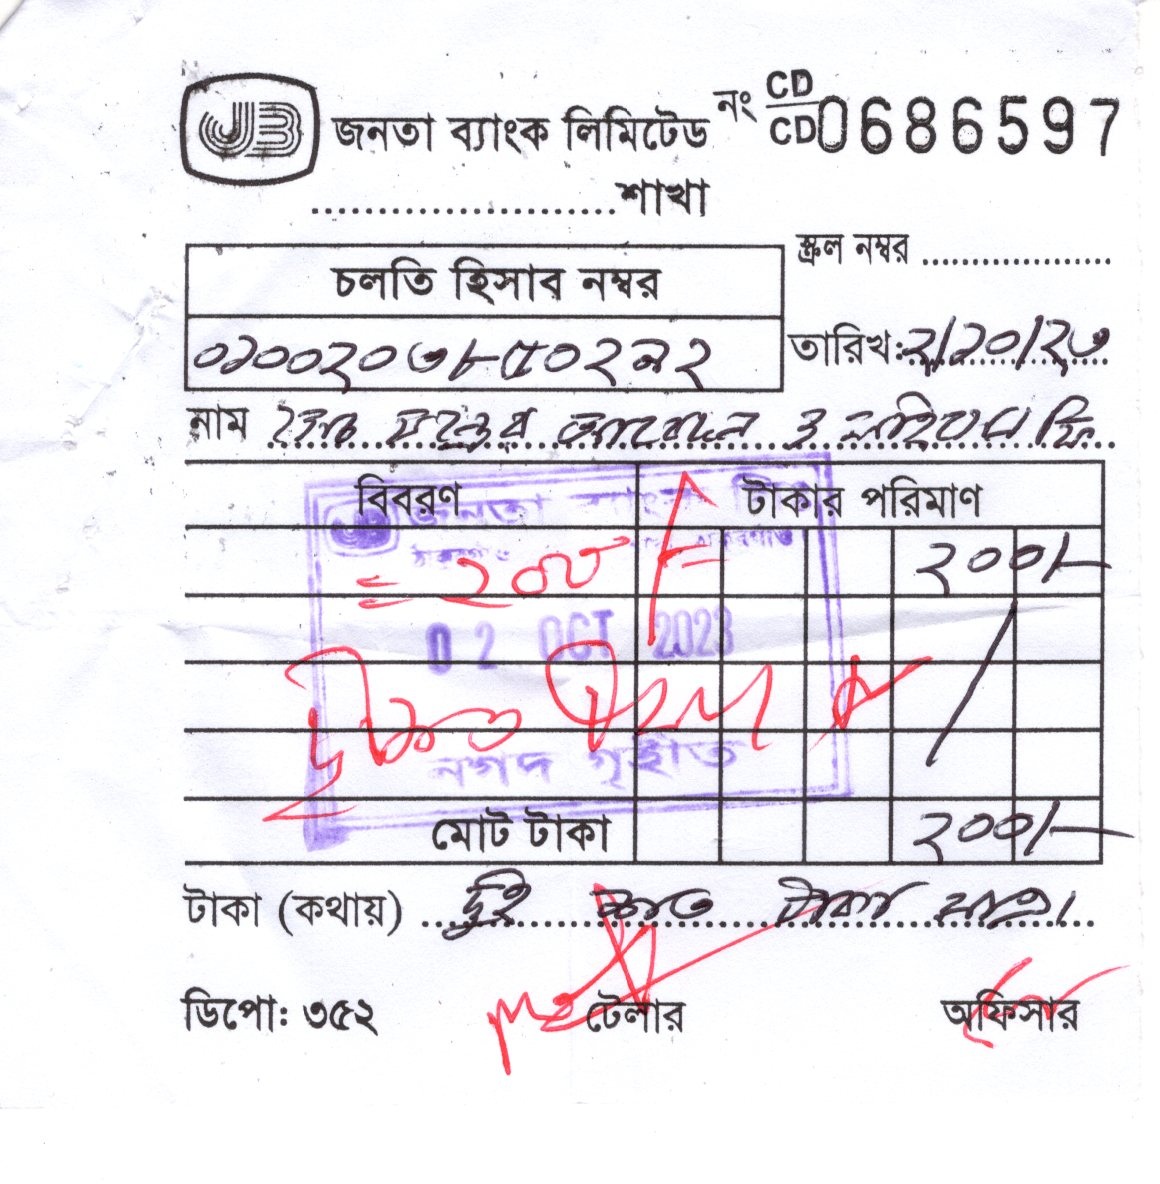 JB জনতা ব্যাংক লিমিটেড নং CD/CD 0686597
শাখা
স্ক্রল নম্বর
চলতি হিসাব নম্বর
০১০০২০৩৮৫০২৯২
তারিখ: ২/১০/২৩
নাম ও ফি
বিবরণ টাকার পরিমাণ
জনতা ব্যাংক
= ২০০ ২০০/-
02 OCT 2023
দুইশত টাকা
নগদ গৃহীত
মোট টাকা ২০০/-
টাকা (কথায়) দুই শত টাকা মাত্র।
ডিপো: ৩৫২ টেলার অফিসার